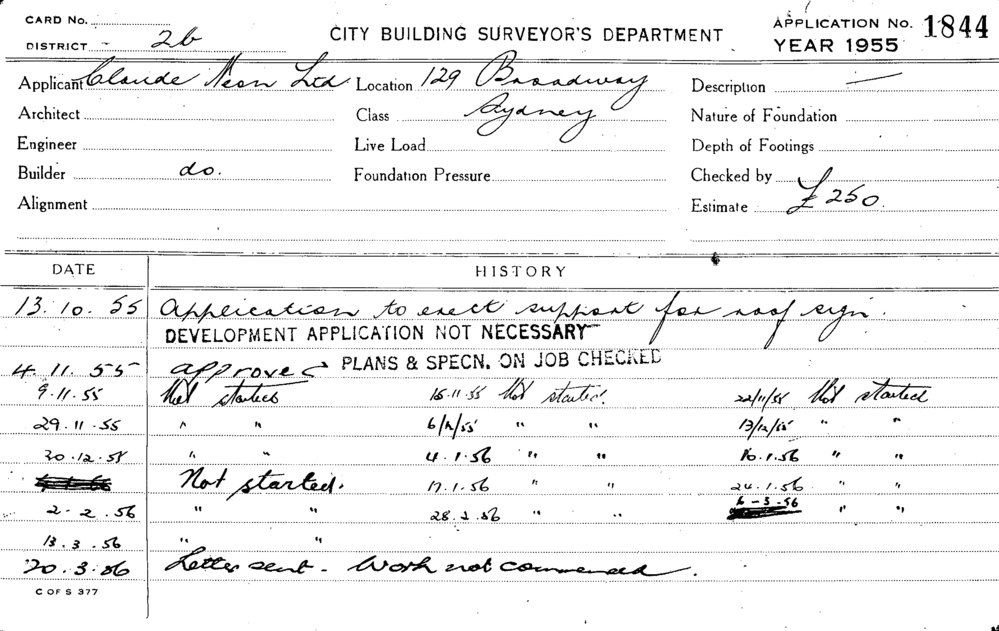 CARD No.
DISTRICT - 2b
CITY BUILDING SURVEYOR'S DEPARTMENT
APPLICATION No. 1844
YEAR 1955
Applicant Claude Neon Ltd Location 129 Broadway Description —
Architect Class Sydney Nature of Foundation
Engineer Live Load Depth of Footings
Builder do. Foundation Pressure Checked by
Alignment Estimate £250.
DATE HISTORY
13.10.55 Application to erect support for roof sign.
DEVELOPMENT APPLICATION NOT NECESSARY
4.11.55 approved PLANS & SPECN. ON JOB CHECKED
9.11.55 Not started 15.11.55 Not started. 22/11/55 Not started
29.11.55 " " 6/12/55 " " 13/12/55 " "
20.12.55 " " 4.1.56 " " 10.1.56 " "
Not started. 17.1.56 " " 24.1.56 " "
2.2.56 " " 28.2.56 " " 6-3-56 " "
13.3.56 " "
20.3.56 Letter sent - Work not commenced.
C OF S 377